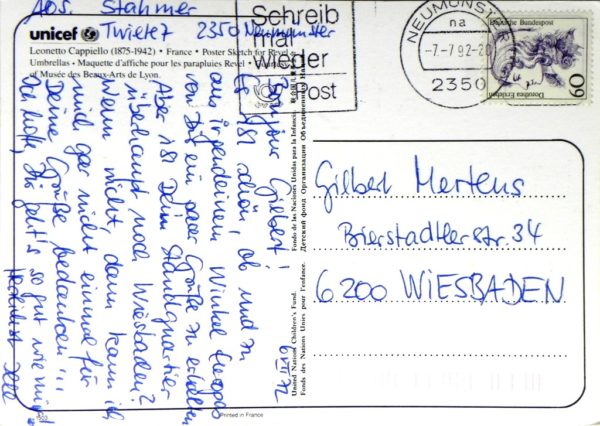 Abs. Stahmer
Twiete 7 2350 Neumünster
unicef
Leonetto Cappiello (1875-1942) • France • Poster Sketch for Revel
Umbrellas • Maquette d'affiche pour les parapluies Revel •
of Musée des Beaux-Arts de Lyon.
Schreib
mal
wieder
Post
NEUMÜNSTER
na
-7-7.92-20
2350
Deutsche Bundespost
60
Dorothea Erxleben
6.VII.92
Bonjour Gilbert!
Es ist schön, ab und zu
aus irgendeinem Winkel Europas
von Dir ein paar Grüße zu erhalten.
Aber ist Dein Standquartier
überhaupt noch Wiesbaden?
Wenn nicht, dann kann ich
mich gar nicht einmal für
Deine Grüße bedanken!!!
Ich hoffe, Dir geht's so gut wie mir!
Herzlichst
United Nations Children's Fund.
Fonds des Nations Unies pour l'enfance.
Fondo de las Naciones Unidas para la Infancia.
Детский фонд Организации Объединенных Наций
Gilbert Mertens
Bierstadtler Str. 34
6200 WIESBADEN
Printed in France